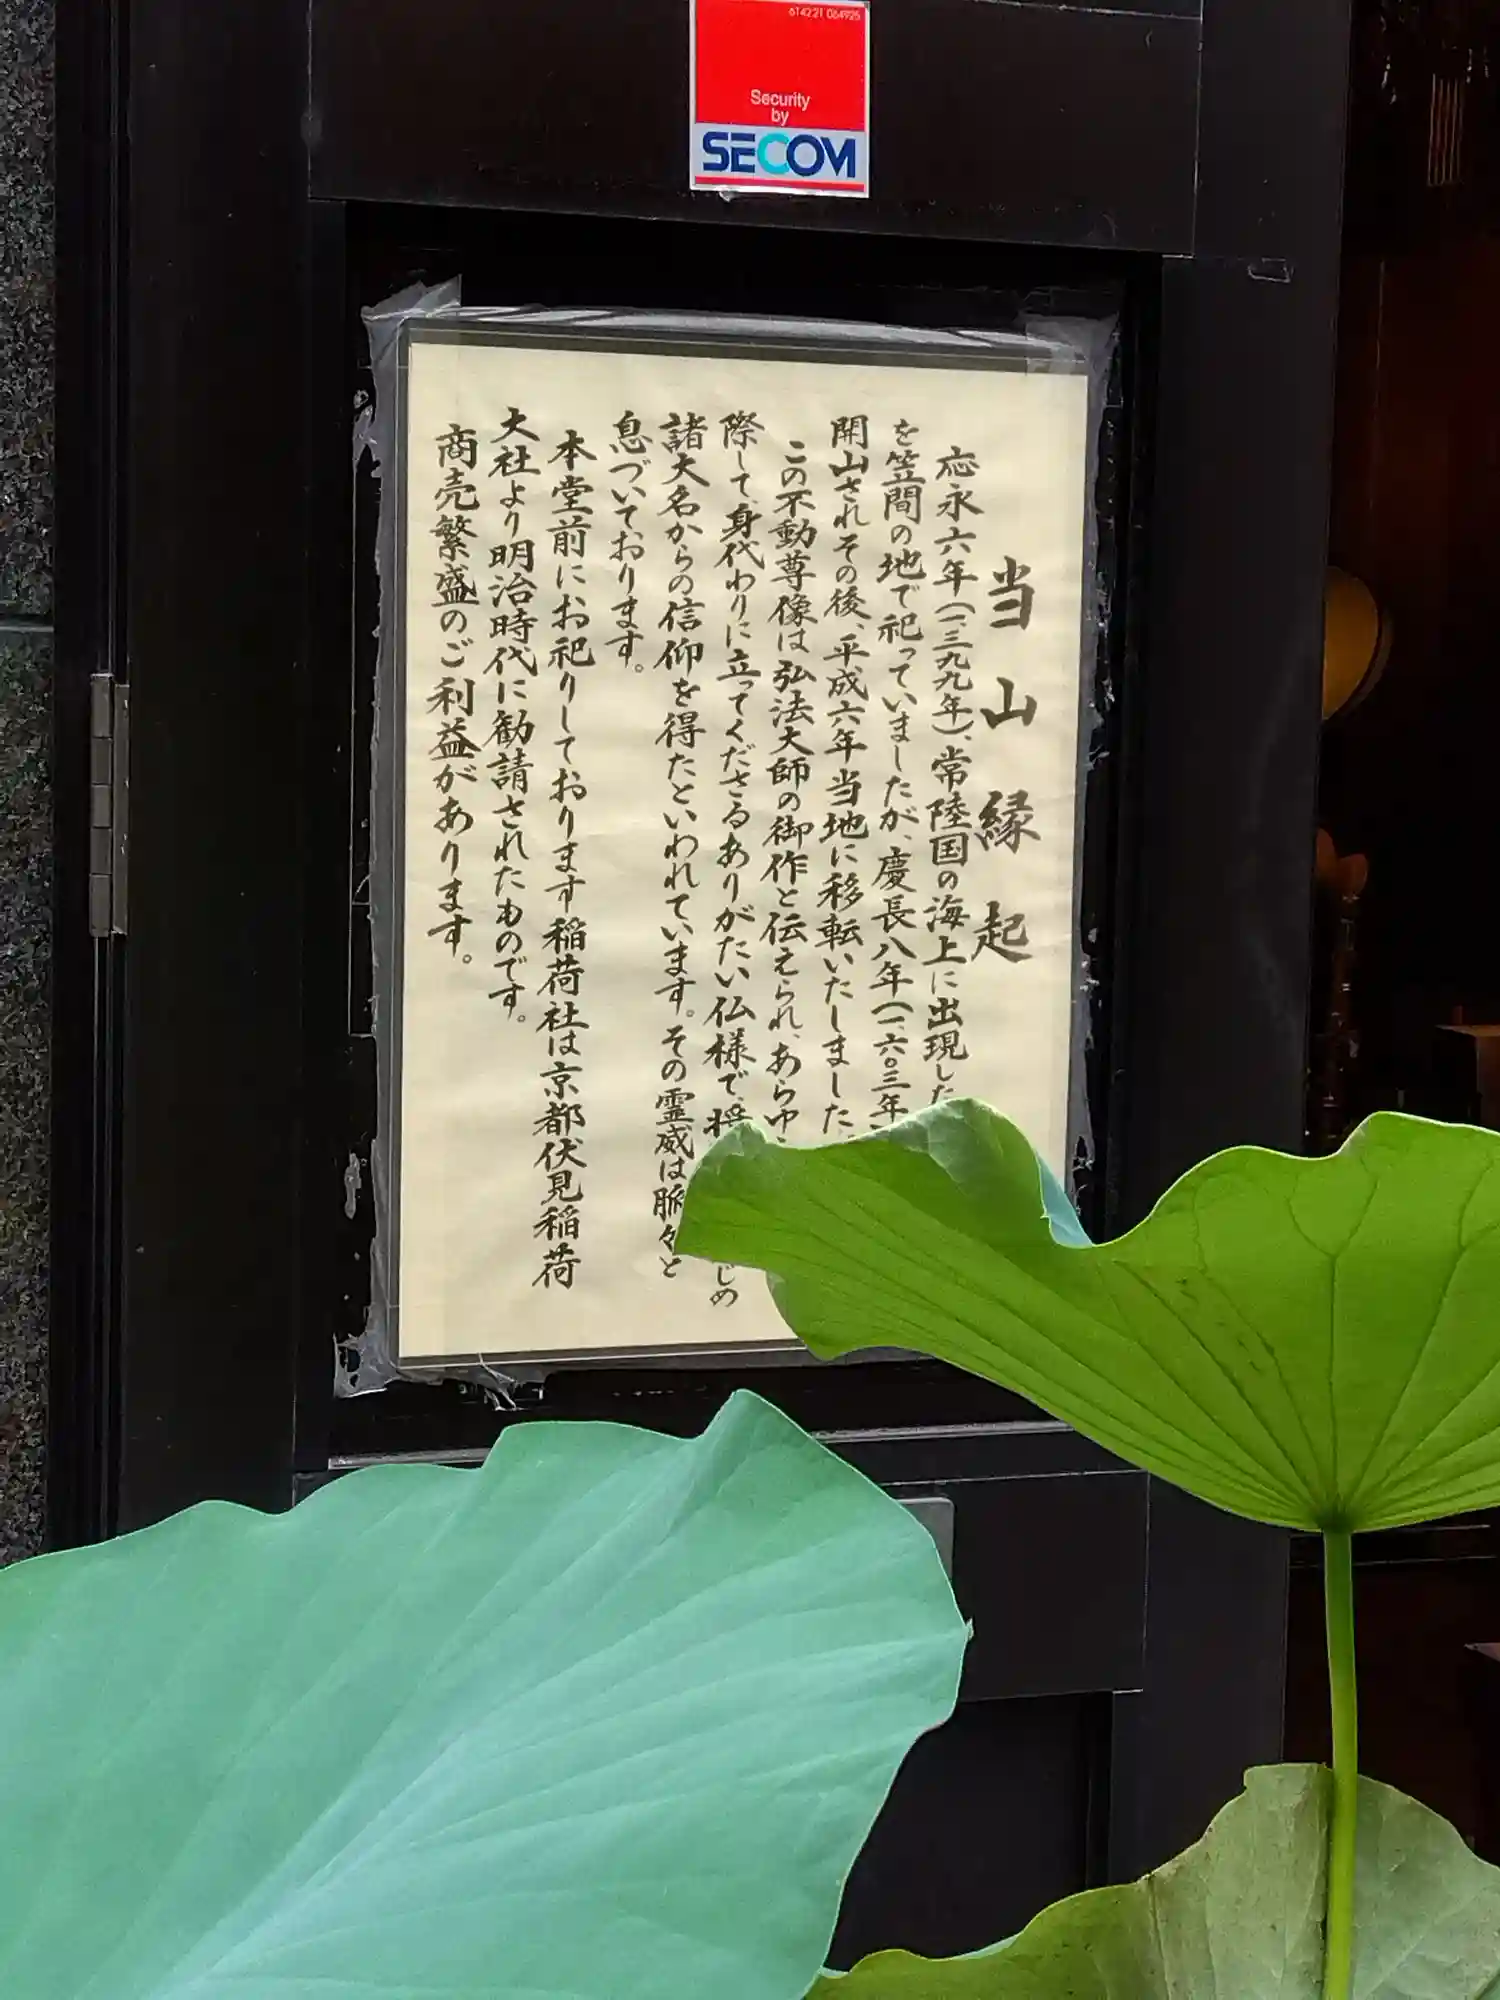 614221 064925
Security
by
SECOM
当山縁起
応永六年(一三九九年)、常陸国の海上に出現した
を笠間の地で祀っていましたが、慶長八年(一六〇三年
開山されその後、平成六年当地に移転いたしました
この不動尊像は弘法大師の御作と伝えられ、あらゆ
際して、身代わりに立ってくださるありがたい仏様で、将 じめ
諸大名からの信仰を得たといわれています。その霊威は脈々と
息づいております。
本堂前にお祀りしております稲荷社は京都伏見稲荷
大社より明治時代に勧請されたものです。
商売繁盛のご利益があります。